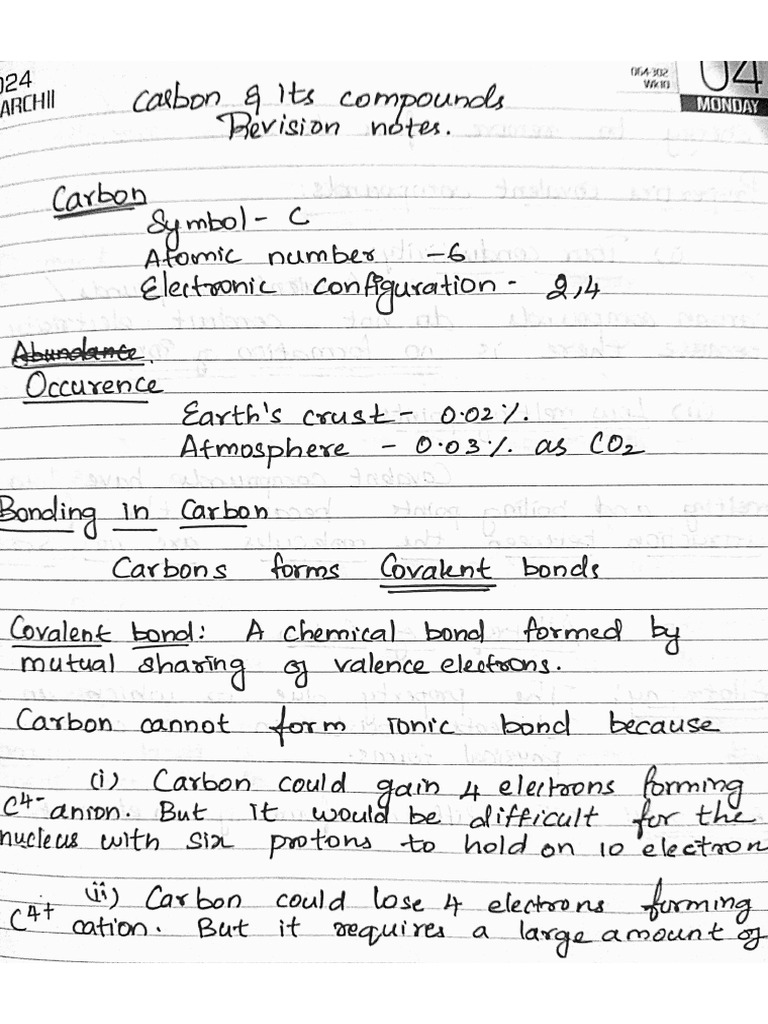 024
ARCHII
064-302
Wk10
04
MONDAY
Carbon & Its compounds
Revision notes.
Carbon
Symbol - C
Atomic number - 6
Electronic configuration - 2,4
Abundance.
Occurence
Earth's crust - 0.02%.
Atmosphere - 0.03%. as CO2
Bonding in Carbon
Carbons forms Covalent bonds
Covalent bond: A chemical bond formed by
mutual sharing of valence electrons.
Carbon cannot form ionic bond because
(i) Carbon could gain 4 electrons forming
C4- anion. But it would be difficult for the
nucleus with six protons to hold on 10 electron
(ii) Carbon could lose 4 electrons forming
C4+ cation. But it requires a large amount of